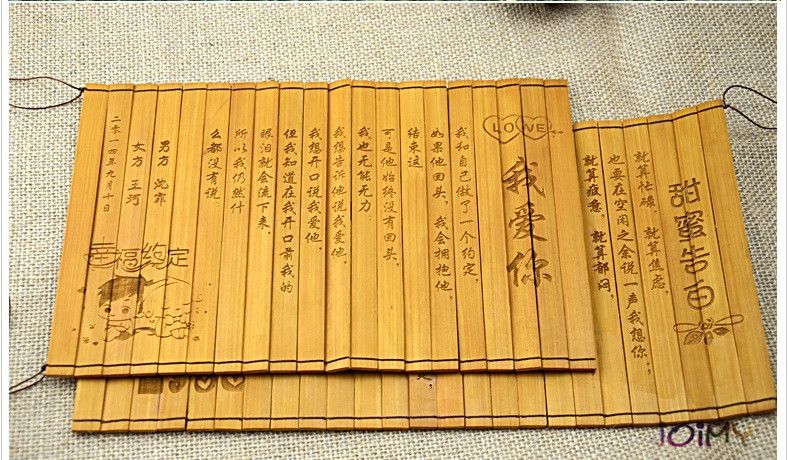 LOVE
我爱你
我和自己做了一个约定,
如果他回头,我会拥抱他,
结束这
可是他始终没有回头,
我也无能无力
我想告诉他说我爱他,
我想开口说我爱他,
但我知道在我开口前我的
眼泪就会流下来,
所以我仍然什
么都没有说
男方 沈霏
女方 王珂
二零一四年九月十日
幸福约定
甜蜜告白
就算忙碌,就算焦虑,
也要在空闲之余说一声我想你..,
就算疲惫,就算郁闷,
IOiMY